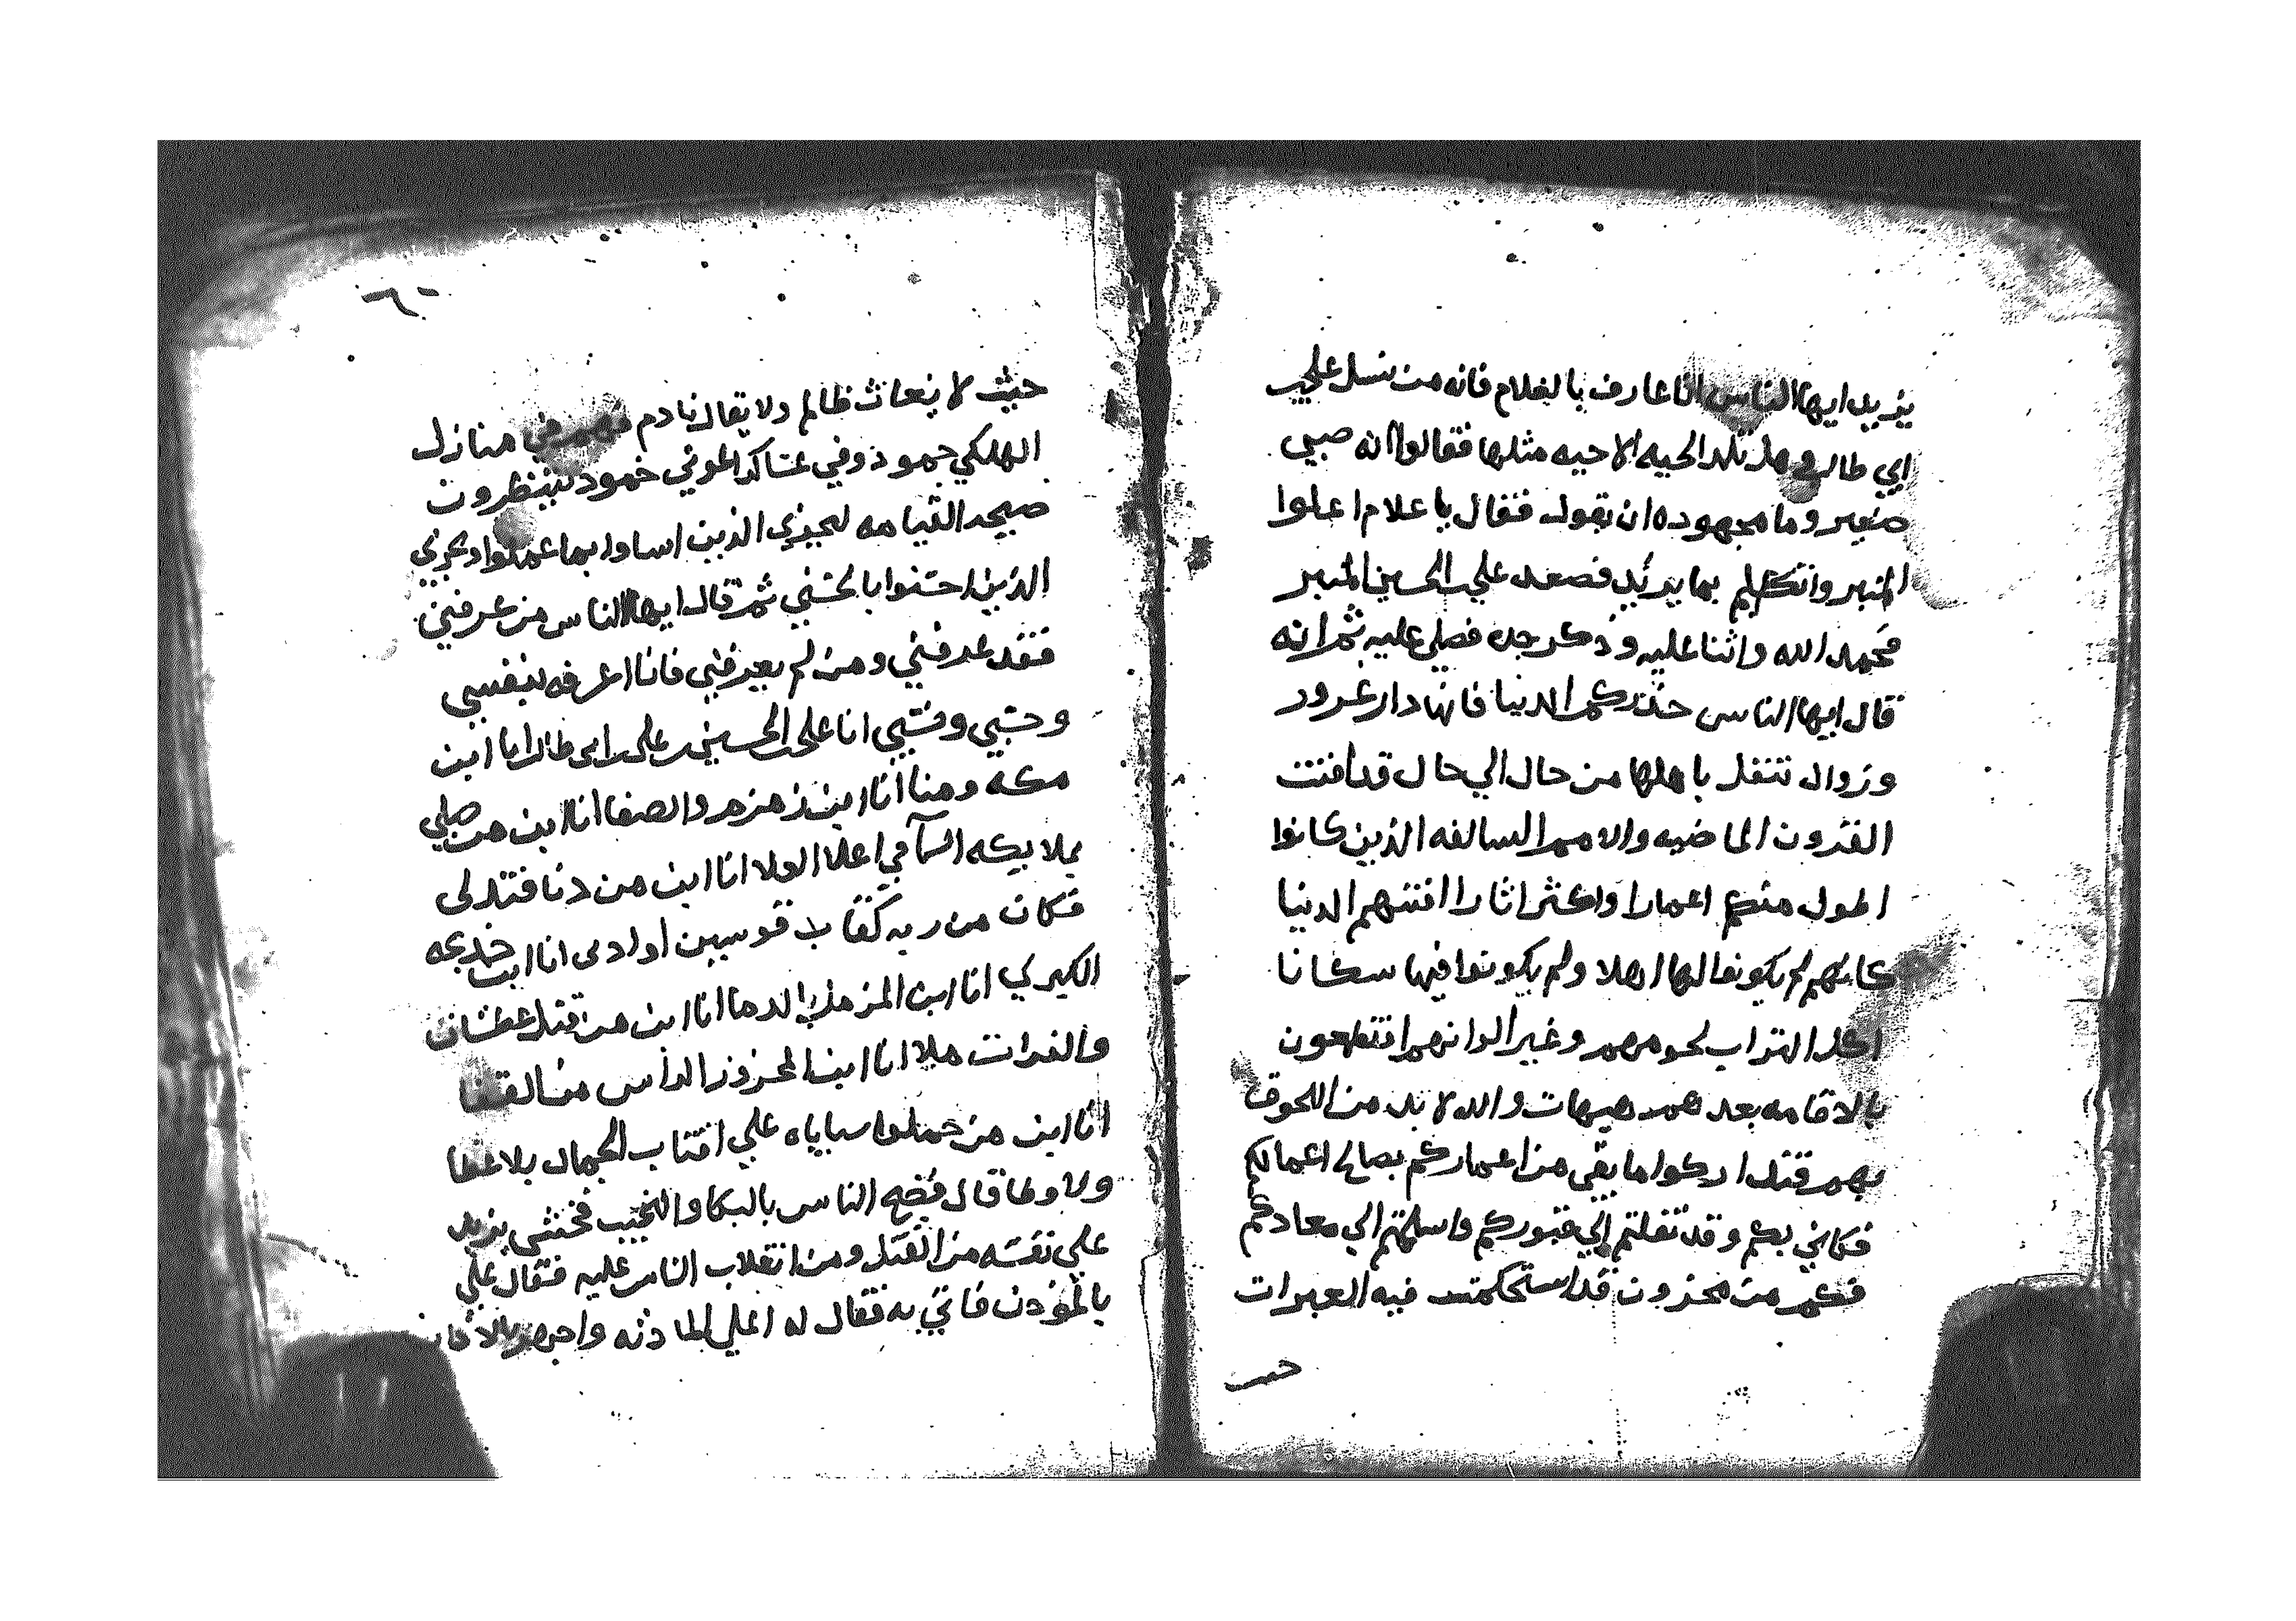 يزيد ايها الناس انا عارف بالغلام فانه من نسل علي
ابي طالب وهل تلد الحيه الا حيه مثلها فقالوا انه صبي
صغير وما مجهوده ان يقول فقال يا غلام اعلوا
المنبر واتكلم بما يريد فصعد علي الحسين المنبر
فحمد الله واثنا عليه وذكر جده فصلي عليه ثم انه
قال ايها الناس حذركم الدنيا فانها دار غرور
وزوال تنتقل باهلها من حال الي حال قد افنت
القرون الماضيه والامم السالفه الذين كانوا
اطول منكم اعمارا واكثر اثارا افنتهم الدنيا
كانهم لم يكونوا لها اهلا ولم يكونوا فيها سكانا
اكل التراب لحومهم وغير الوانهم افتطمعون
بالاقامه بعدهم هيهات والله لا بد من اللحوق
بهم فتداركوا ما بقي من اعماركم بصالح اعمالكم
فكاني بكم وقد نقلتم الي قبوركم واسلمتم الي معادكم
فكم من محزون قد استحكمت فيه العبرات
حيث
٦٠
حيث لا يغاث ظالم ولا يقال نادم فهم في منازل
الهلكي جمود وفي عساكر الموتي خمود ينتظرون
صيحه القيامه ليجزي الذين اساوا بما عملوا ويجزي
الذين احسنوا بالحسني ثم قال ايها الناس من عرفني
فقد عرفني ومن لم يعرفني فانا اعرفه بنفسي
وحسبي ونسبي انا علي الحسين بن علي بن ابي طالب انا ابن
مكه ومنا انا ابن زمزم والصفا انا ابن من صلي
بملايكه السما في اعلا العلا انا ابن من دنا فتدلي
فكان من ربه كقاب قوسين او ادني انا ابن خديجه
الكبري انا ابن المزمل بالدما انا ابن من قتل عطشان
والفرات ملا انا ابن المحزوز الراس من القفا
انا ابن من حملوا سباياه علي اقتاب الجمال بلا غطا
ولا وطا قال فضج الناس بالبكا والنحيب فخشي يزيد
علي نفسه من القتل ومن انقلاب الناس عليه فقال علي
بالموذن فاتي به فقال له اعلي المادنه واجهر بالاذان